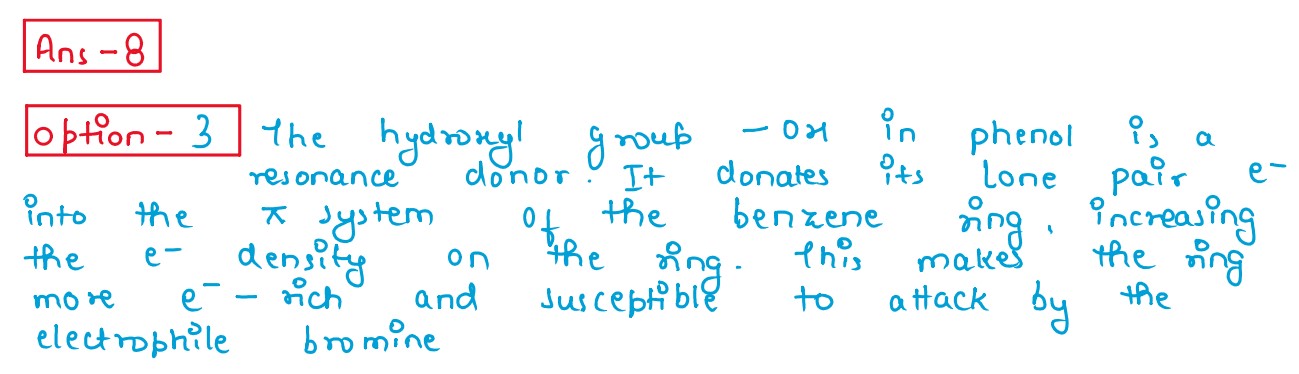 Ans - 8
option - 3 The hydroxyl group - OH in phenol is a
resonance donor. It donates its lone pair e⁻
into the π system of the benzene ring, increasing
the e⁻ density on the ring. This makes the ring
more e⁻ - rich and susceptible to attack by the
electrophile bromine